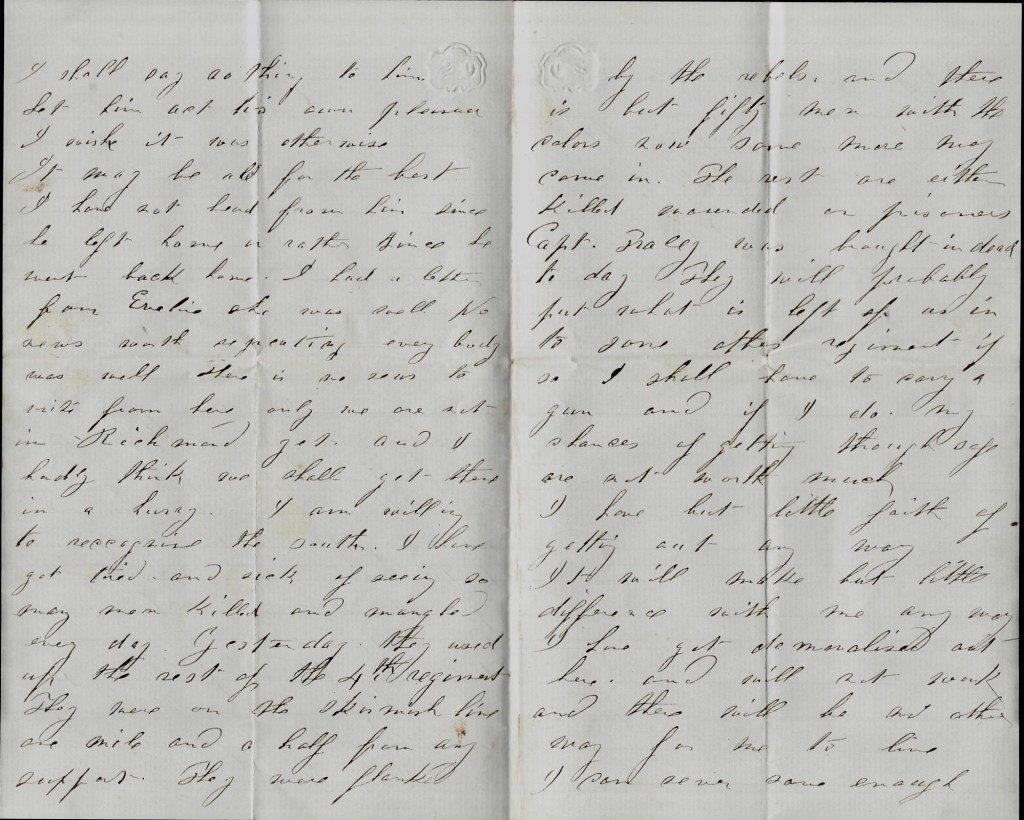 I shall say nothing to him
Let him act his own pleasure
I wish it was otherwise
It may be all for the best
I have not heard from him since
he left home or rather since he
went back home. I had a letter
from Emelie she was well No
news worth repeating every body
was well There is no news to
write from here only we are not
in Richmond yet. and I
hardly think we shall get there
in a hurry. I am willing
to reccognise the south. I have
got tired. and sick of seeing so
many men killed and mangled
every day. Yesterday. they used
up the rest of the 4th regiment
They were on the skirmish line
one mile and a half from any
support. They were flanked
by the rebels. and there
is but fifty men with the
colors now some more may
come in. The rest are either
killed wounded or prisoners
Capt. was brought in dead
to day They will probably
put what is left of us in
to some other regiment if
so I shall have to carry a
gun and if I do. my
chances of getting through safe
are not worth much
I have but little faith of
getting out any way
It will make but little
difference with me any way
I have got demoralised out
here. and will not work
and there will be no other
way for me to live
I can never save enough